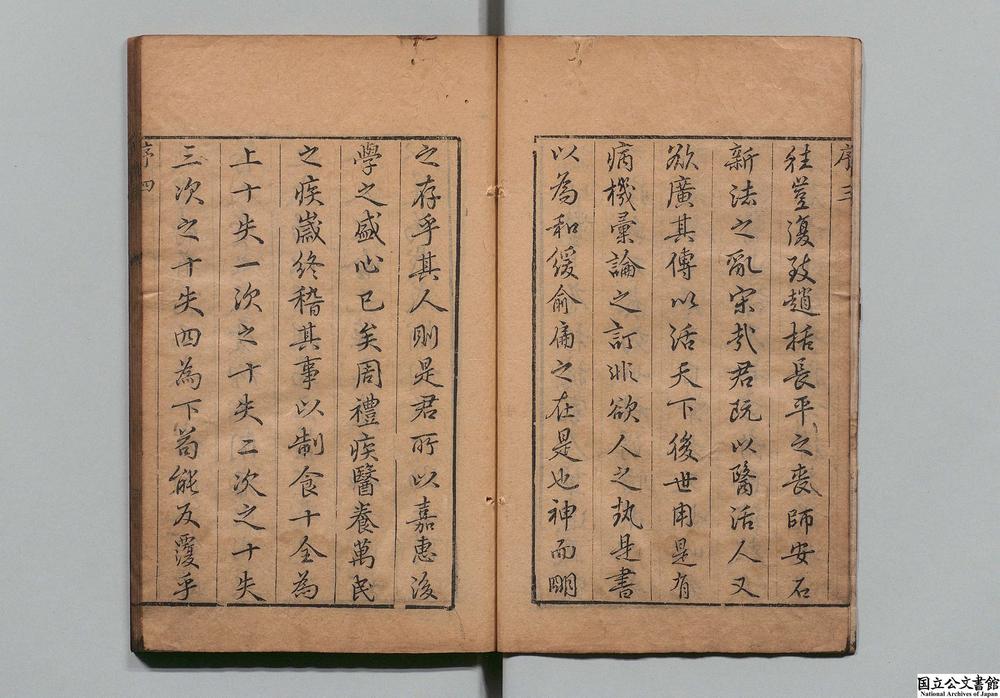 序三
往豈復致趙括長平之喪師安石
新法之亂宋哉君既以醫活人又
欲廣其傳以活天下後世用是有
病機彙論之訂非欲人之执是書
以為和緩俞扁之在是也神而明
之存乎其人則是君所以嘉惠後
學之盛心已矣周禮疾醫養萬民
之疾歲終稽其事以制食十全為
上十失一次之十失二次之十失
三次之十失四為下苟能反覆乎
序四
国立公文書館
National Archives of Japan